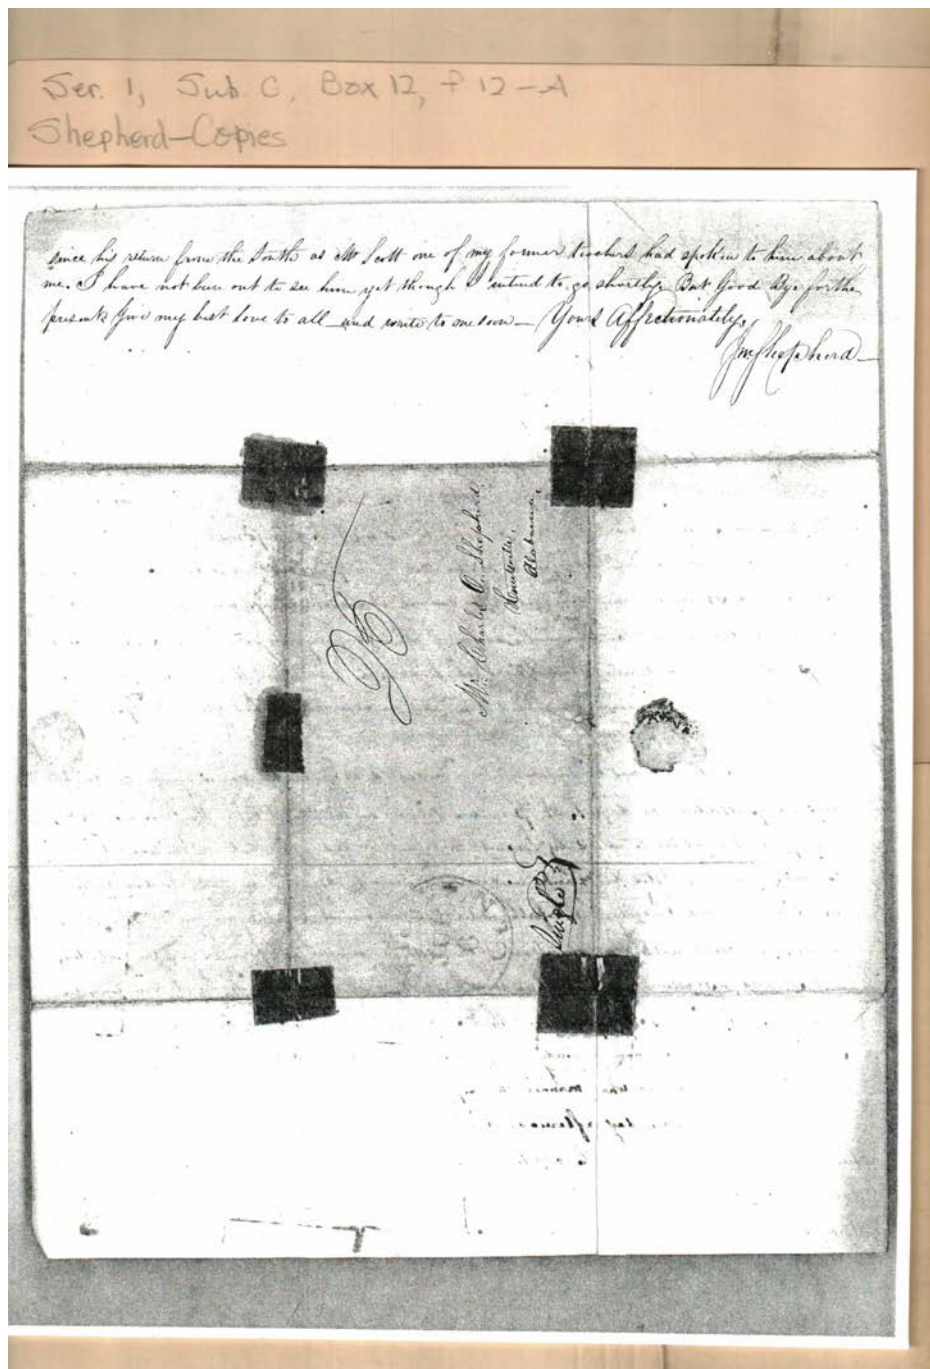 Ser. 1, Sub. C, Box 12, f 12-A
Shepherd-Copies
since his return from the South as Mr Scott one of my former teachers had spoken to him about
me. I have not been out to see him yet though I intend to go shortly. But Good Bye for the
present. Give my best love to all and write to me soon— Yours Affectionately,
Shepherd—
Mr. Charles Shepherd.
Alabama.
Single